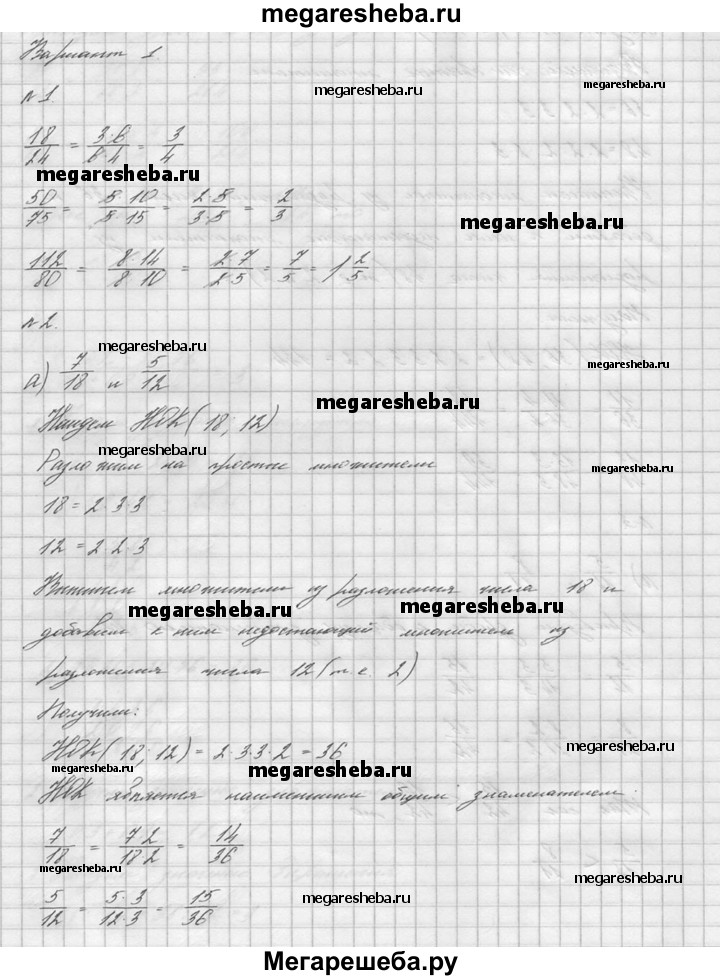 megaresheba.ru
Вариант 1.
megaresheba.ru
№1.
18/24 = 3·6/6·4 = 3/4
megaresheba.ru
50/75 = 5·10/5·15 = 2·5/3·5 = 2/3
megaresheba.ru
112/80 = 8·14/8·10 = 2·7/2·5 = 7/5 = 1 2/5
№2.
megaresheba.ru
а) 7/18 и 5/12
megaresheba.ru
megaresheba.ru
Найдем НОК(18; 12)
megaresheba.ru
Разложим на простые множители
megaresheba.ru
18 = 2·3·3
12 = 2·2·3
Выпишем множители из разложения числа 18 и
megaresheba.ru megaresheba.ru
добавим к ним недостающий множитель из
разложения числа 12 (т.е. 2)
Получили:
НОК(18; 12) = 2·3·3·2 = 36
megaresheba.ru
megaresheba.ru megaresheba.ru
НОК является наименьшим общим знаменателем.
7/18 = 7·2/18·2 = 14/36
megaresheba.ru megaresheba.ru
5/12 = 5·3/12·3 = 15/36
megaresheba.ru
Мегарешеба.ру